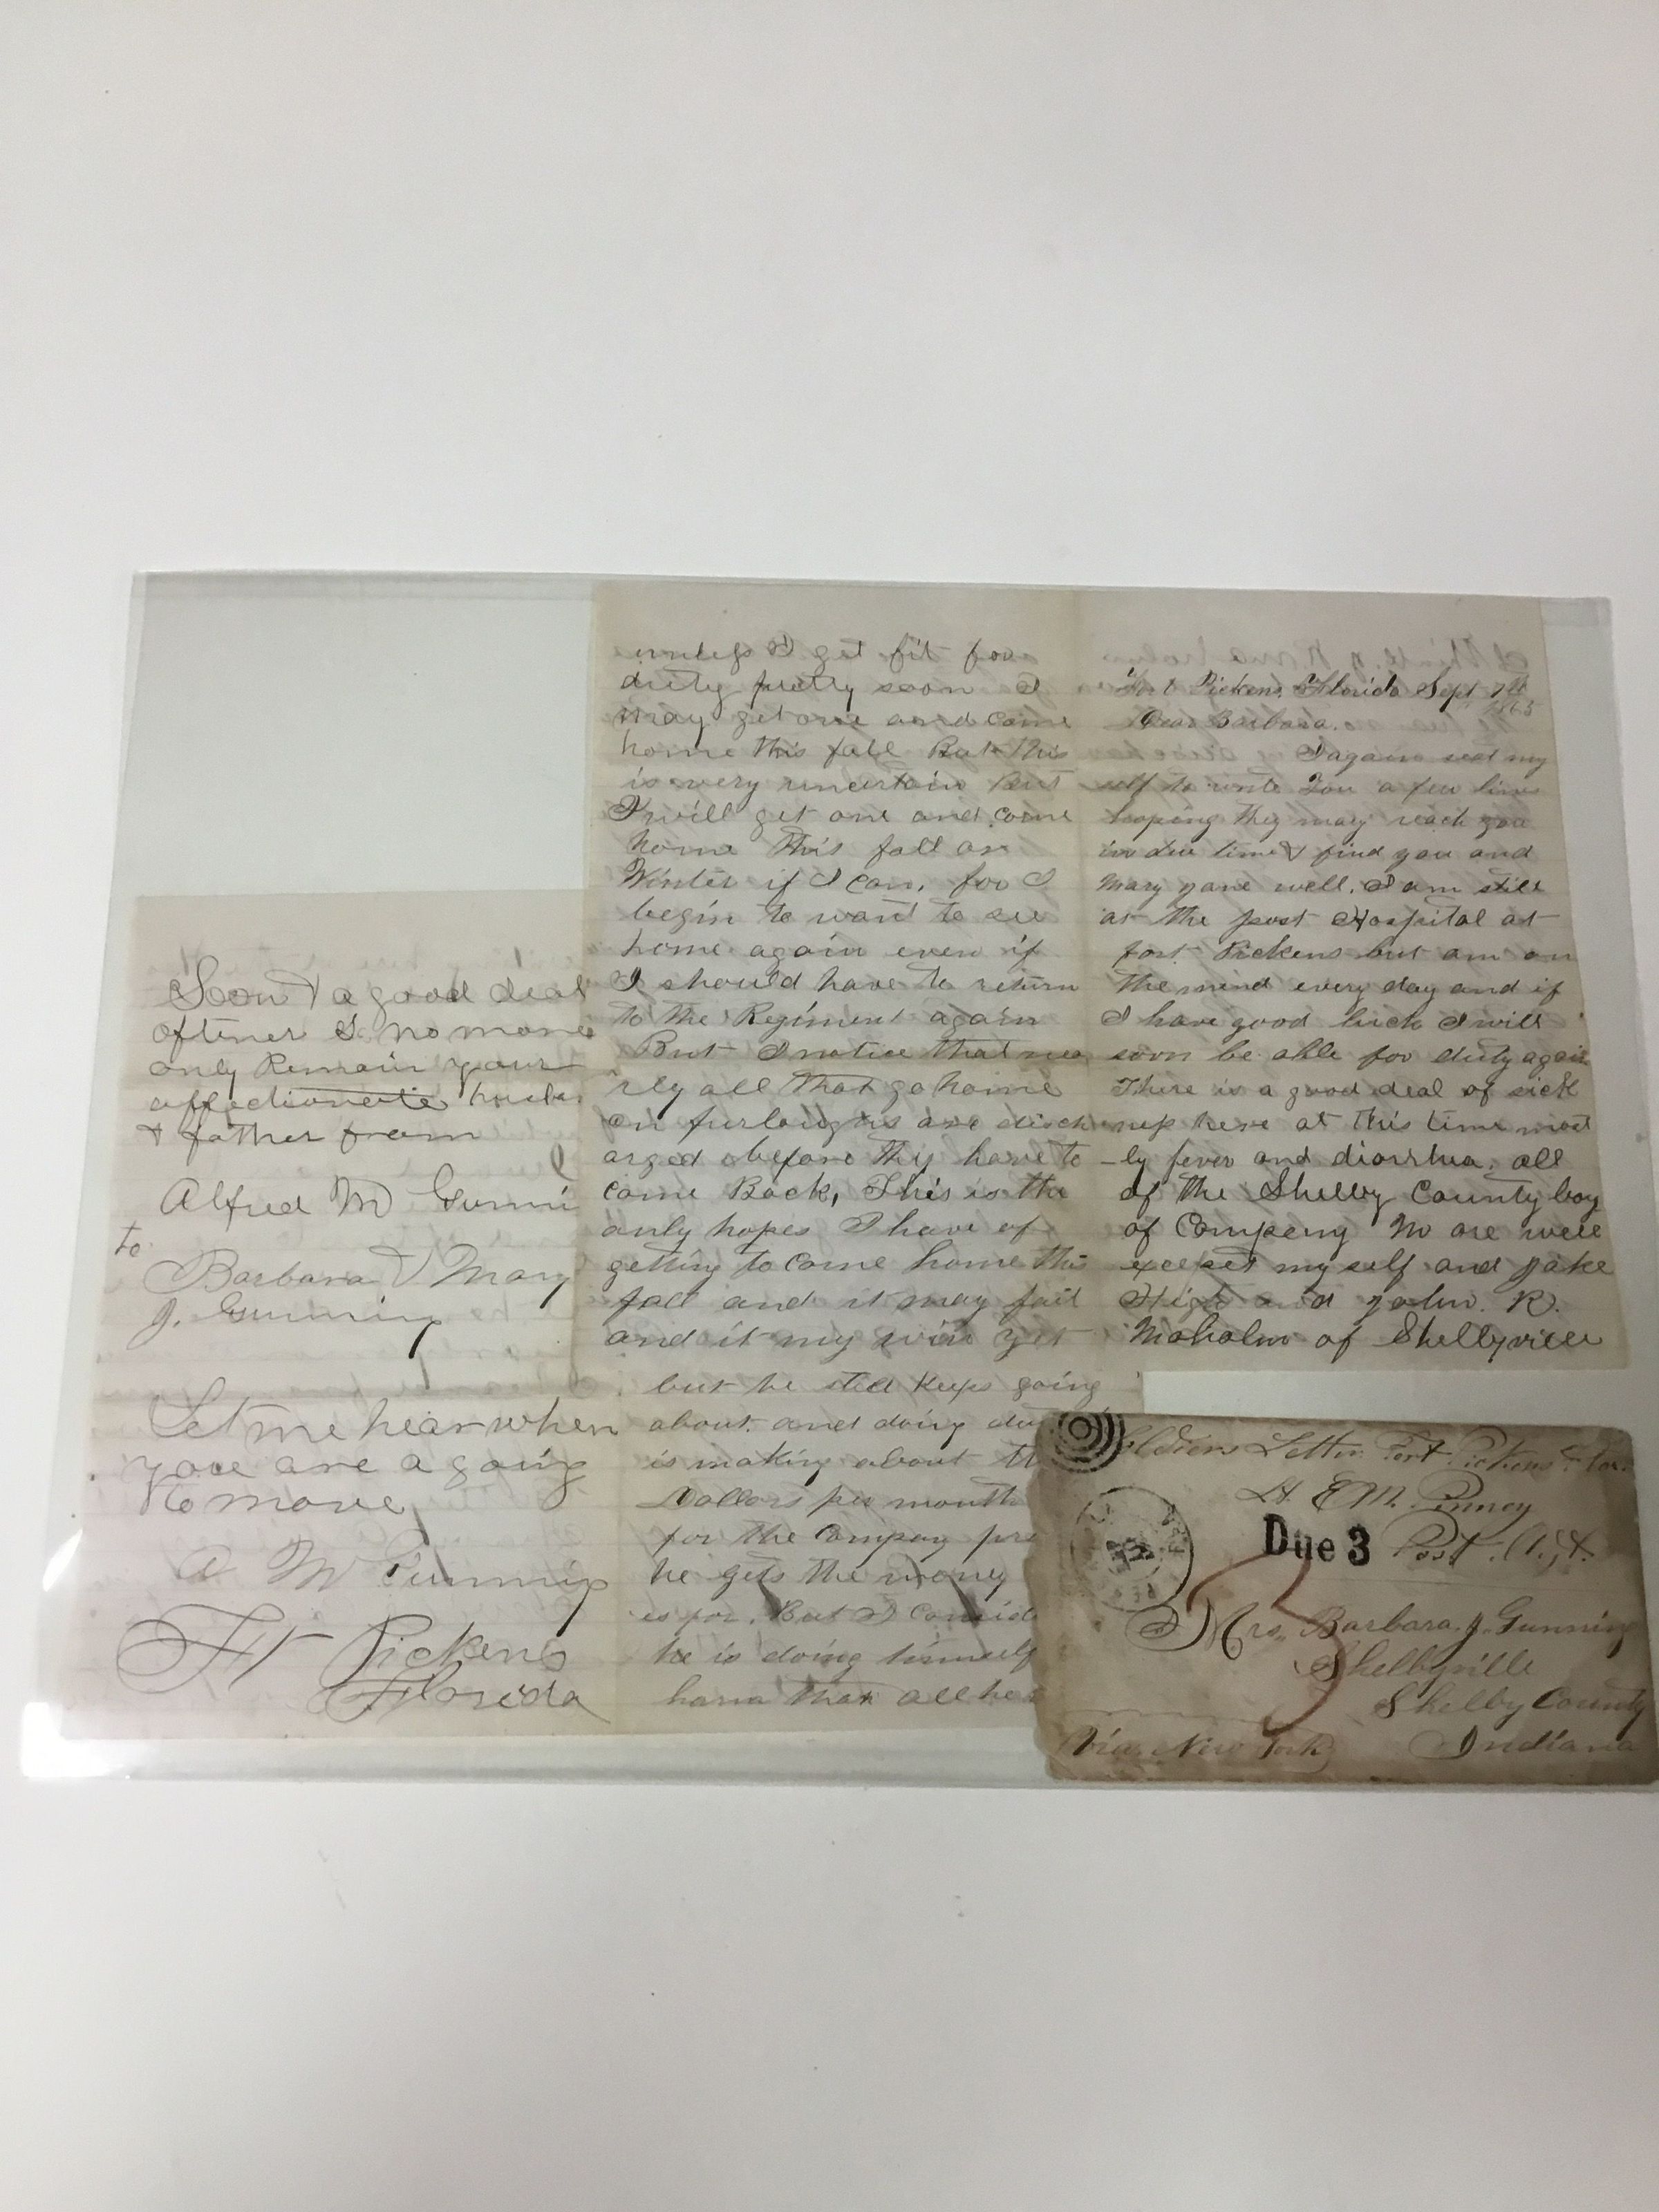 Fort Pickens, Florida Sept 7th
1863
Dear Barbara.
I again seat my
self to write You a few lines
hoping they may reach you
in due time & find you and
Mary Jane well. I am still
at the post Hospital at
fort Pickens but am on
the mend every day and if
I have good luck I will
soon be able for duty again
There is a good deal of sick
ness here at this time most
-ly fever and diorrhea, all
of the Shelby County boys
of Company are well
except my self and Jake
High and John. R.
Maholm of Shelbyville
unless I get fit for
duty pretty soon I
may get one and come
home this fall But this
is very uncertain but
I will get one and come
home this fall or
Winter if I can, for I
begin to want to see
home again even if
I should have to return
to the Regiment again
But I notice that nea
rly all that go home
on furloughs are disch
arged before thy have to
come Back, This is the
only hopes I have of
getting to come home this
fall and it may fail
and it my win yet
but he still keeps going
about and doing
is making about
Dollars per month
for the Company
he gets the money
is for. But I
he is doing himself
harm than all he
Soon & a good deal
oftener So no more
only Remain your
affectionate
& father from
Alfred M Gunni
to
Barbara & Mary
J. Gunning
Let me hear when
you are a going
to move
A M Gunning
Ft Pickens
Florida
Soldiers Letter Fort Pickens Flor.
Lt E M. Penney
Due 3 Post. Adjt.
3
Mrs. Barbara. J. Gunning
Shelbyville
Shelby County
Via. New York Indiana